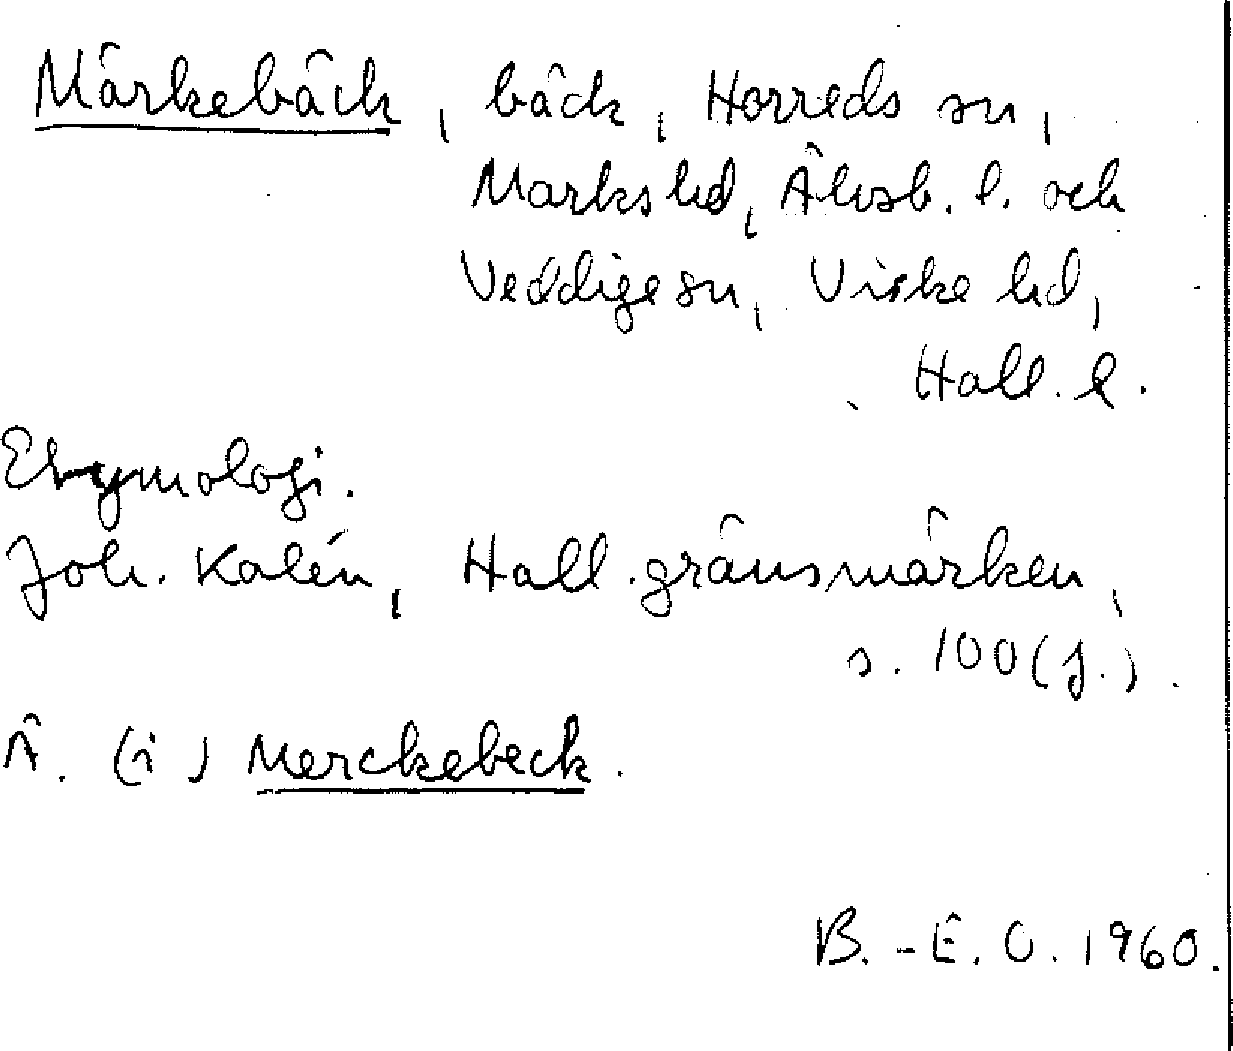 Märkebäck, bäck, Horreds sn,
Marks hd, Älvsb. l. och
Veddige sn, Viske hd,
Hall. l.
Etymologi.
Joh. Kalén, Hall. gränsmärken,
s. 100 (f.).
Ä. (i) Merckebeck.
B.-E. O. 1960.